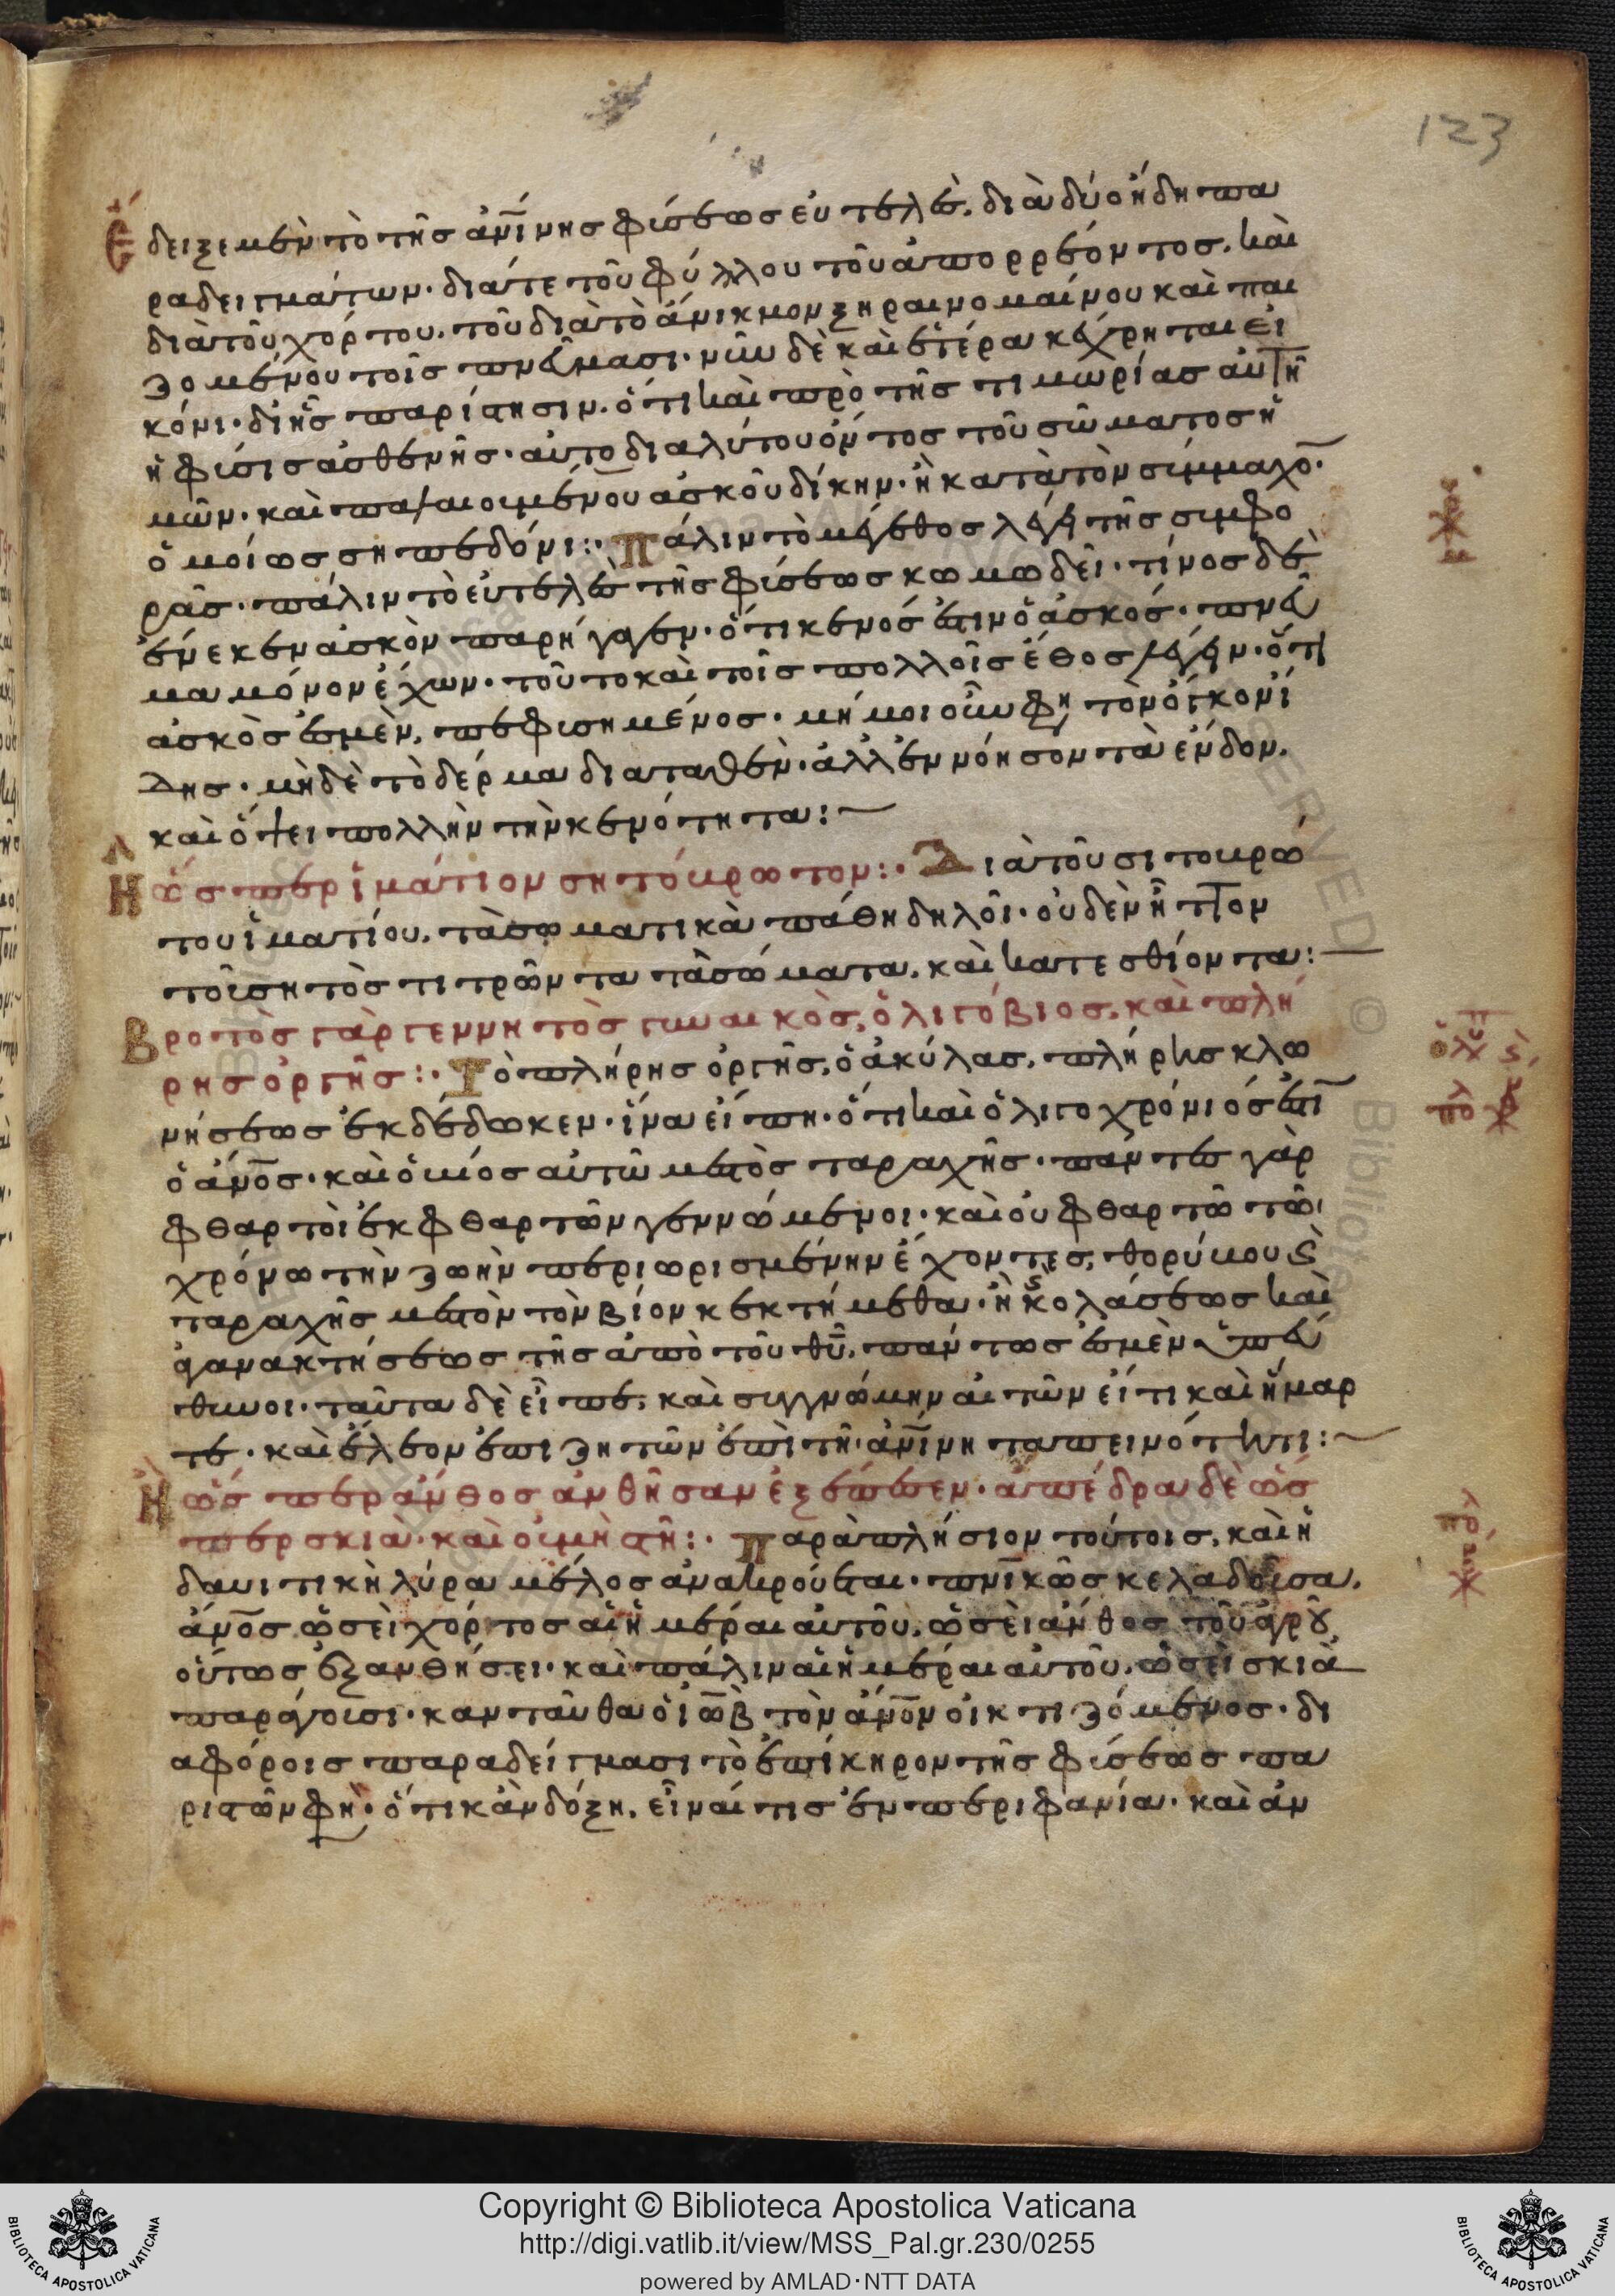 123
Ἔδειξε μὲν τὸ τῆς ἀν̅ίνης φύσεως εὐτελὲς, διὰ δύο ἤδη πα
ραδειγμάτων· διά τε τοῦ φύλλου τοῦ ἀπορρέοντος. καὶ
διὰ τοῦ χόρτου. τοῦ διὰ τὸ ἄνικμον ξηραινομαίνου καὶ παι
ζομένου τοῖς πνεύμασι· νῦν δὲ καὶ ἑτέρα κέχρηται εἰ
κόνι· δι' ἧς παρίστησιν. ὅτι καὶ πρὸ τῆς τιμωρίας αὕτη
ἡ φύσις ἀσθενὴς· αὐτοδιαλύτου ὄντος τοῦ σώματος ἡ
μῶν· καὶ παλαιουμένου ἀσκοῦ δίκην· ἢ κατὰ τὸν σύμμαχο̅·
ὁμοίως σηπεδόνι:· Πάλιν τὸ μέγεθος λέγει τῆς συμφο
ρᾶς· πάλιν τὸ εὐτελὲς τῆς φύσεως κωμωδεῖ· τίνος δὲ
ἕνεκεν ἀσκὸν παρήγαγεν· ὅτι κενός ἐστιν ὁ ἀσκός· πνεῦ
μα μόνον ἔχων· τοῦτο καὶ τοῖς πολλοῖς ἔθος λέγειν· ὅτι
ἀσκὸς ἐσμὲν, πεφυσημένος· μή μοι οὖν φη τὸν ὄγκον ἴ
δης· μὴ δὲ τὸ δέρμα διαταθὲν· ἀλλ' ἐννόησον τὰ ἔνδον.
καὶ ὄψει πολλὴν τὴν κενότητα:~
Ἢ ὥσπερ ἱμάτιον σητόκρωτον:· Διὰ τοῦ σιτοκρώ
του ἱματίου. τὰ σωματικὰ πάθη δηλοῖ· οὐδὲν ἧττον
τοῖς σητὸς τιτρῶντα τὰ σώματα. καὶ κατεσθίοντα:—
Βροτὸς γὰρ γεννητὸς γυναικὸς, ὀλιγόβιος. καὶ πλή
ρης ὀργῆς:· Τὸ πλήρης ὀργῆς, ὁ ἀκύλας. πλήρης κλο
νήσεως ἐκδέδωκεν· ἵνα εἴπη· ὅτι καὶ ὀλιγοχρόνιός ἐστι
ὁ ἄν̅ος· καὶ ὁ βίος αὐτῶ μεστὸς ταραχῆς· πάντες γὰρ
φθαρτοὶ ἐκ φθαρτῶν γεννώμενοι· καὶ οὐ φθαρτῶ τῶ
χρόνω τὴν ζωὴν περιωρισμένην ἔχοντες, θορύβου ϛ
ταραχῆς μεστὸν τὸν βίον κεκτήμεθα· ἢ ϛ κολάσεως καὶ
ἀγανακτήσεως τῆς ἀπὸ τοῦ θ̅υ, πάντως ἐσμὲν ὑπεύ
θυνοι· ταῦτα δὲ εἶπε, καὶ συγγνώμην αἰτῶν εἴ τι καὶ ἥμαρ
τε· καὶ ἔλεον ἐπιζητῶν ἐπὶ τῆ ἀν̅ίνη ταπεινότητι:~
Ἢ ὥσπερ ἄνθος ἀνθῆσαν ἐξέπεσεν· ἀπέδρα δὲ ὥσ
περ σκιὰ· καὶ οὐ μὴ στῆ:· Παραπλήσιον τούτοις, καὶ ἡ
δαυιτικὴ λύρα μέλος ἀνακρούεται· πν̅ικῶς κελαδοῦσα.
ἄν̅ος ὡσεὶ χόρτος αἱ ἡμέραι αὐτοῦ, ὡσεὶ ἄνθος τοῦ ἀγροῦ
οὕτως ἐξανθήσει· καὶ πάλιν αἱ ἡμέραι αὐτοῦ. ὡσεὶ σκιὰ
παράγουσι· κἀνταῦθα ὁ ἰὼβ τὸν ἄν̅ον οἰκτιζόμενος· δι
αφόροις παραδείγμασι τὸ ἐπίκηρον τῆς φύσεως πα
ριστῶν φη· ὅτι κἂν δόξη, εἶναί τις ἐν περιφανία· καὶ ἀν
Copyright © Biblioteca Apostolica Vaticana
http://digi.vatlib.it/view/MSS_Pal.gr.230/0255
powered by AMLAD·NTT DATA
BIBLIOTECA APOSTOLICA VATICANA
BIBLIOTECA APOSTOLICA VATICANA